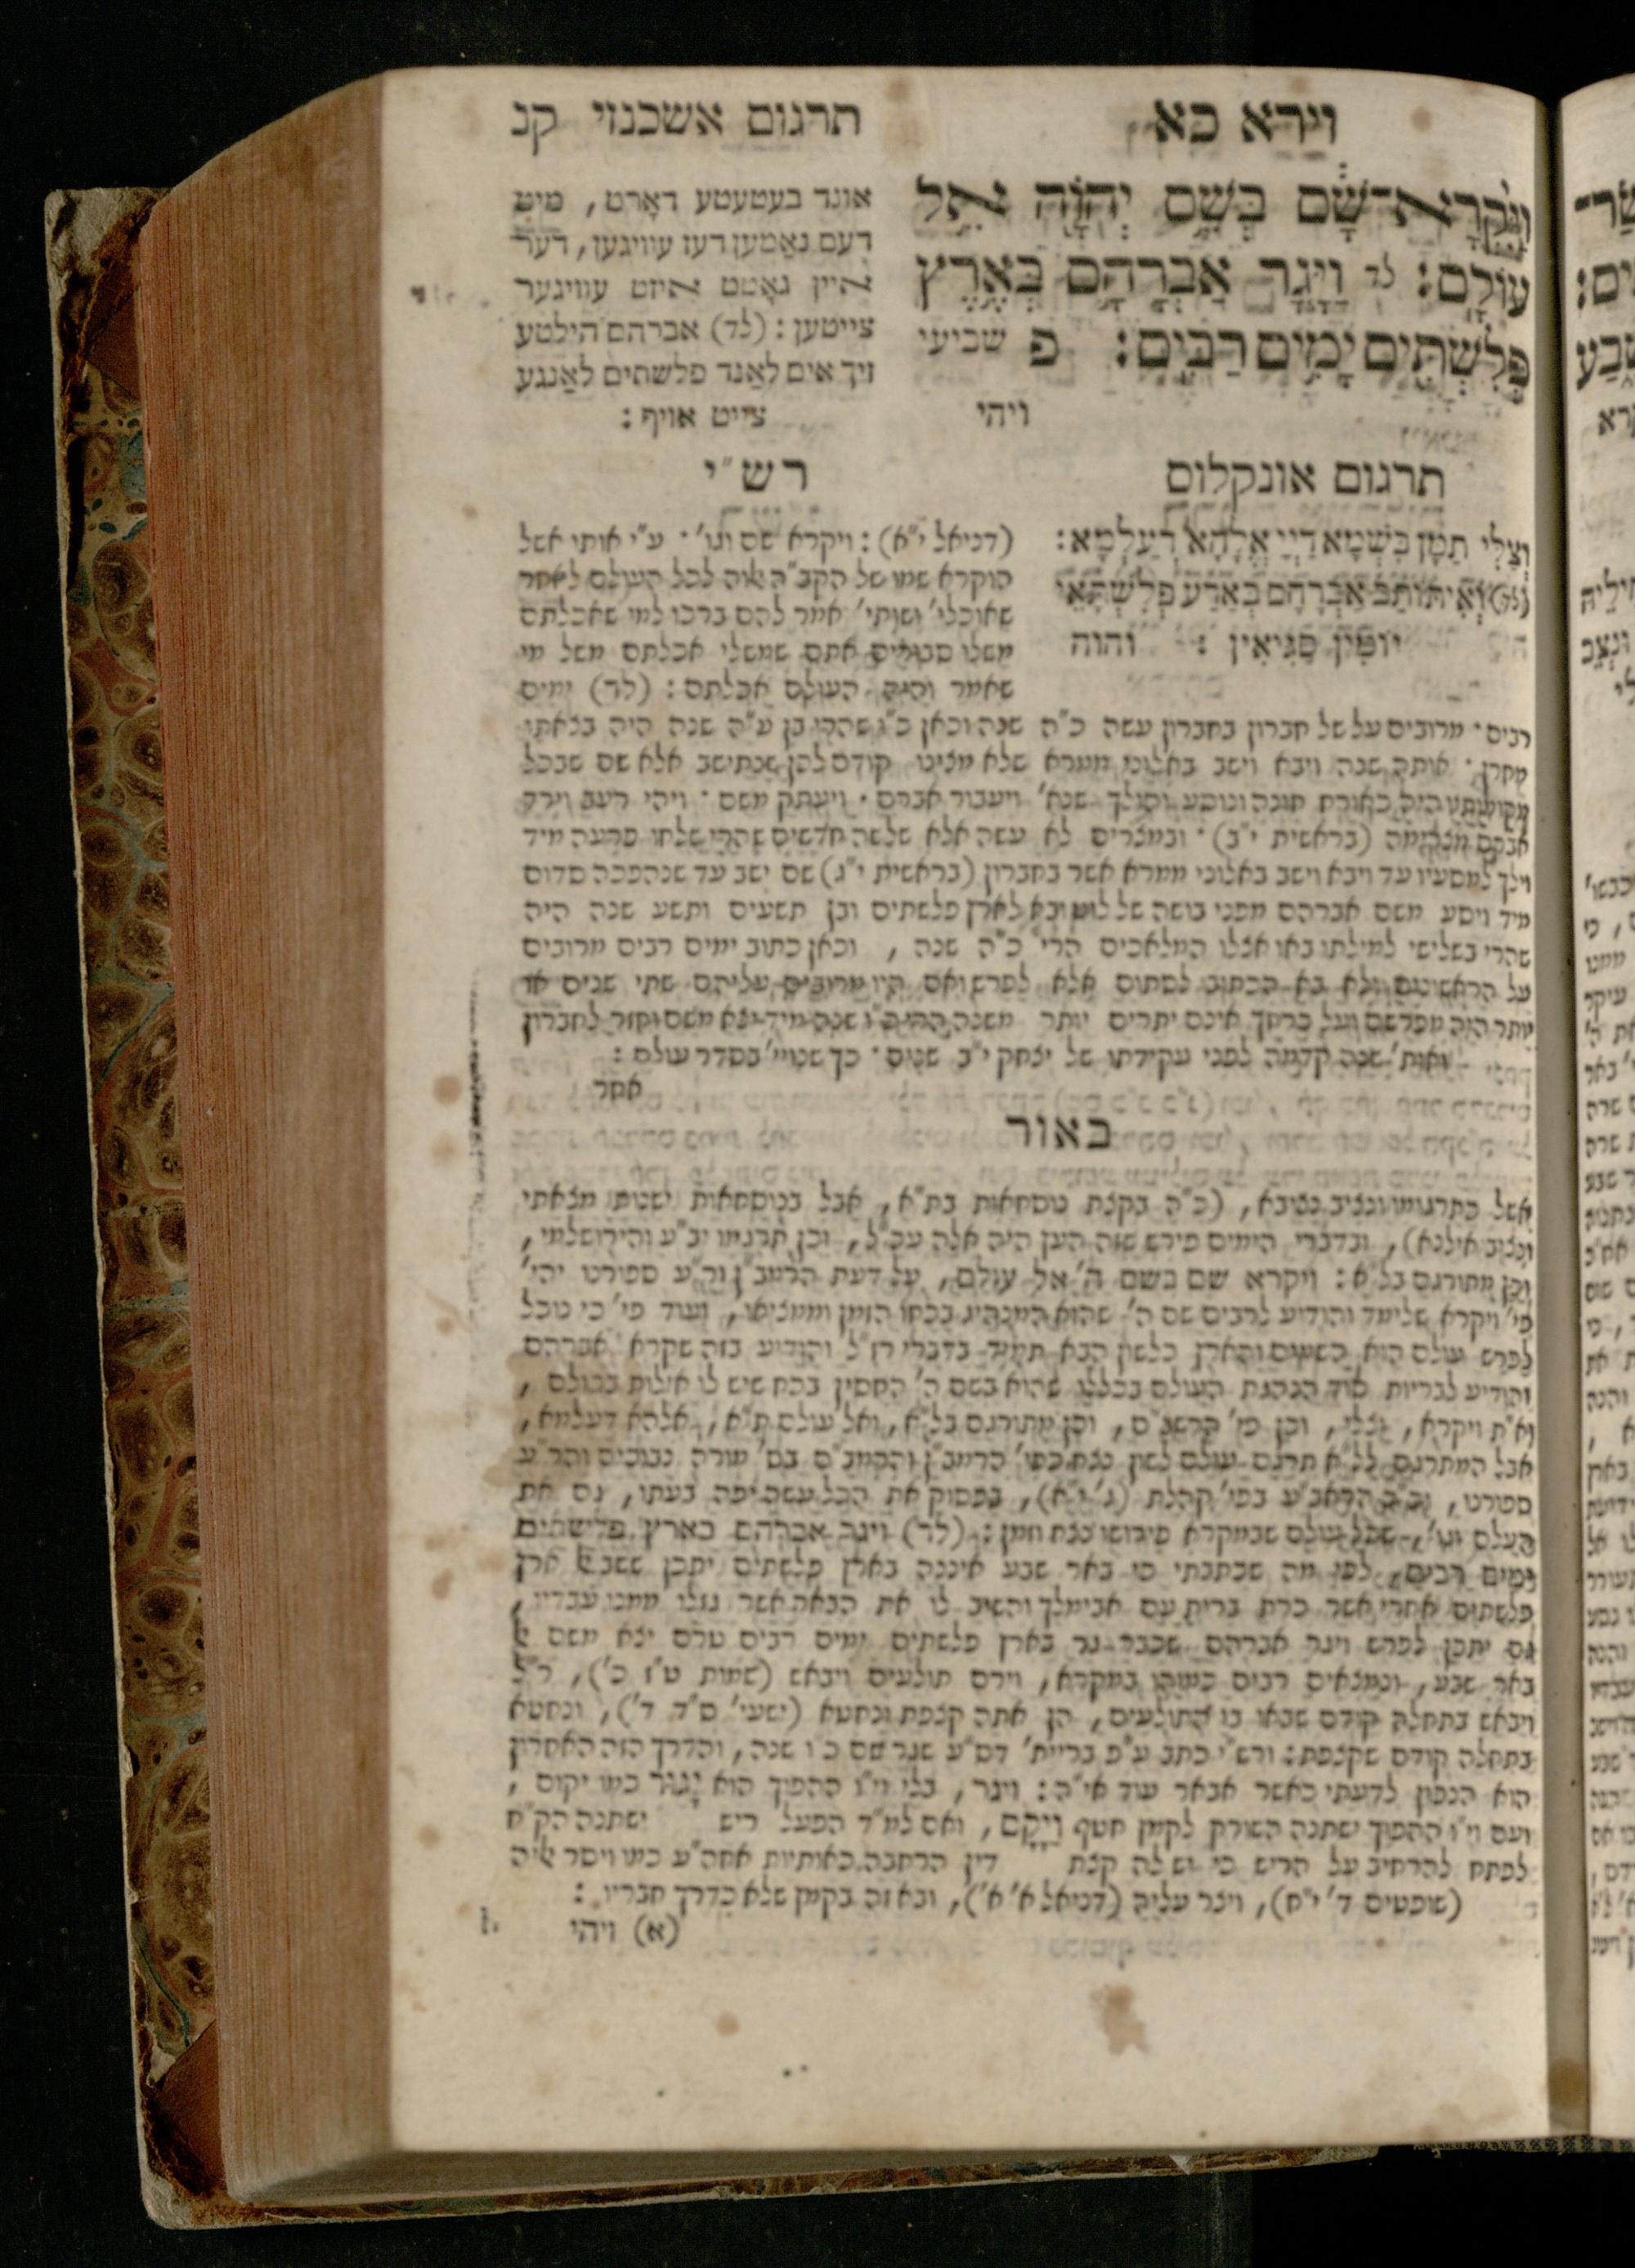 וירא כא
תרגום אשכנזי קנ
וַיִּקְרָא־שָׁם בְּשֵׁם יְהוָֹה אֵל
עוֹלָם: לד וַיָּגָר אַבְרָהָם בְּאֶרֶץ
פְּלִשְׁתִּים יָמִים רַבִּים: פ שביעי
ויהי
אונד בעטעטע דאָרט, מיט
דעם נאַמען דעז עוויגען, דער
איין גאָטט איזט עוויגער
צייטען: (לד) אברהם הילטע
זיך אים לאַנד פלשתים לאַנגע
צייט אויף:
תרגום אונקלוס
וְצַלִּי תַמָּן בִּשְׁמָא דַיְיָ אֱלָהָא דְעַלְמָא:
(לד) וְאִיתּוֹתַב אַבְרָהָם בְּאַרְעַ פְּלִשְׁתָּאֵי
יוֹמִין סַגִּיאִין: והוה
רש"י
(דניאל י"א): ויקרא שם וגו'. ע"י אותו אשל
הוקרא שמו של הקב"ה אלוה לכל העולם לאחר
שאוכלי' ושותי' אמר להם ברכו למי שאכלתם
משלו סבורים אתם שמשלי אכלתם משל מי
שאמר והיה העולם אכלתם: (לד) ימים
רבים. מרובים על של חברון בחברון עשה כ"ה שנה וכאן כ"ו שהרי בן ע"ה שנה היה בצאתו
מחרן. אותה שנה ויבא וישב באלוני ממרא שלא מצינו קודם לכן שנתישב אלא שם שבכל
מקומותיו היה כאורח חונה ונוסע והולך שנא' ויעבור אברם. ויעתק משם. ויהי רעב וירד
אברם מצרימה (בראשית י"ב). ובמצרים לא עשה אלא שלשה חדשים שהרי שלחו פרעה מיד
וילך למסעיו עד ויבא וישב באלוני ממרא אשר בחברון (בראשית י"ג) שם ישב עד שנהפכה סדום
מיד ויסע משם אברהם מפני בושה של לוט ובא לארץ פלשתים ובן תשעים ותשע שנה היה
שהרי בשלישי למילתו באו אצלו המלאכים הרי כ"ה שנה, וכאן כתוב ימים רבים מרובים
על הראשונים ולא בא הכתוב לסתום אלא לפרש ואם היו מרובים עליהם שתי שנים או
יותר היה מפרשם ועל כרחך אינם יתרים יותר משנה הרי כ"ו שנה מיד יצא משם וחזר לחברון
ואות' שנה קדמה לפני עקידתו של יצחק י"ב שנים. כך שנויי' בסדר עולם:
אחר
באור
אשל כתרגומו ונציב נציבא, (כ"ה בקצת נוסחאות בת"א, אבל בנוסחאות ישנות מצאתי
ונציב אילנא), ובדברי הימים פירש שזה העץ היה אלה עכ"ל, וכן תרגמו יב"ע והירושלמי,
וכן מתורגם בל"א: ויקרא שם בשם ה' אל עולם, על דעת הרמב"ן ור"ע ספורט יהי'
פי' ויקרא שלימד והודיע לרבים שם ה' שהוא המנהיג בכחו הזמן וממציאו, ועוד פי' כי נוכל
לפרש עולם הוא השמים והארץ כלשון הבא תמיד בדברי רז"ל והודיע בזה שקרא אברהם
והודיע לבריות סוד הנהגת העולם בכללו שהוא בשם ה' החסין בכח שיש לו אילות בכולם,
וא"ת ויקרא, וצלי, וכן פי' הרשב"ם, וכן מתורגם בל"א, ואל עולם ת"א, אלהא דעלמא,
אבל המתרגם לל"א תרגם עולם לשון נצח כפי' הרמב"ן והרמב"ם בס' מורה נבוכים והר"ע
ספורט, וכ"כ הראב"ע בפי' קהלת (ג' י"א), בפסוק את הכל עשה יפה בעתו, גם את
העולם וגו', שכל עולם שבמקרא פירושו נצח וזמן: (לד) ויגר אברהם בארץ פלשתים
ימים רבים, לפי מה שכתבתי כי באר שבע איננה בארץ פלשתים יתכן ששב אל ארץ
פלשתים אחרי אשר כרת ברית עם אבימלך והשיב לו את הבאר אשר גזלו ממנו עבדיו,
גם יתכן לפרש ויגר אברהם שכבר גר בארץ פלשתים ימים רבים טרם יצא משם אל
באר שבע, ונמצאים רבים כמוהו במקרא, וירם תולעים ויבאש (שמות ט"ז כ'), ר"ל
ויבאש בתחלה קודם שבאו בו התולעים, הן אתה קצפת ונחטא (ישעי' ס"ד ד'), ונחטא
בתחלה קודם שקצפת: ורש"י כתב ע"פ ברייית' דס"ע שגר שם כ"ו שנה, והדרך הזה האחרון
הוא הנכון לדעתי כאשר אבאר עוד אי"ה: ויגר, בלי וי"ו ההפוך הוא יָגוּר כמו יקום,
ועם וי"ו ההפוך ישתנה השורק לקמץ חטף וַיָקָם, ואם למ"ד הפעל ריש ישתנה הק"ח
לפתח להרחיב על הריש כי יש לה קצת דין הרחבה כאותיות אחה"ע כמו ויסר אליה
(שופטים ד' י"ח), ויצר עליה (דניאל א' א'), ובא זה בקמץ שלא כדרך חבריו:
(א) ויהי